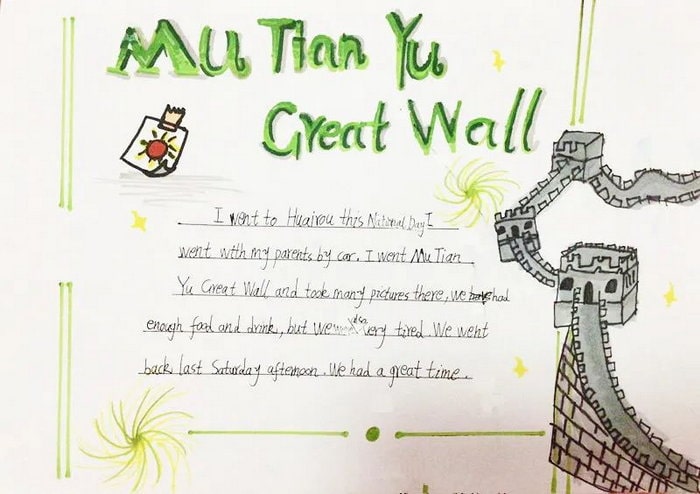 Mu Tian Yu
Great Wall
I went to Huairou this National Day I
went with my parents by car. I went Mu Tian
Yu Great Wall and took many pictures there, we had
enough food and drink, but We very tired. We went
back last Saturday afternoon. We had a great time.